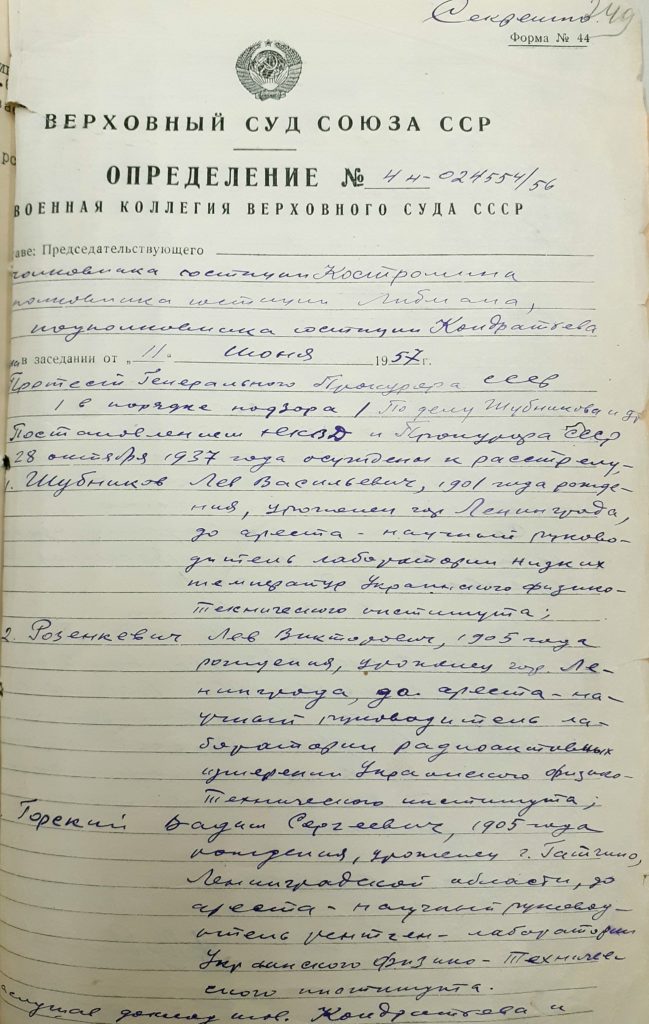 Секретно. 249
Форма № 44
ВЕРХОВНЫЙ СУД СОЮЗА ССР
ОПРЕДЕЛЕНИЕ № 4н-024554/56
ВОЕННАЯ КОЛЛЕГИЯ ВЕРХОВНОГО СУДА СССР
таве: Председательствующего
полковника юстиции Костромина
полковника юстиции Либмана,
подполковника юстиции Кондратьева
в заседании от „11" июня 1957 г.
Протест Генерального Прокурора СССР
/ в порядке надзора / По делу Шубникова и др
Постановлением НКВД и Прокурора СССР
28 октября 1937 года осуждены к расстрелу
1. Шубников Лев Васильевич, 1901 года рожде-
ния, уроженец гор Ленинграда,
до ареста - научный руково-
дитель лаборатории низких
температур Украинского физико-
технического института;
2. Розенкевич Лев Викторович, 1905 года
рождения, уроженец гор. Ле-
нинграда, до ареста - на-
учный руководитель ла-
боратории радиоактивных
измерений Украинского физико-
технического института;
Горский Вадим Сергеевич, 1905 года
рождения, уроженец г. Гатчино,
Ленинградской области, до
ареста - научный руковод-
итель рентген-лаборатории
Украинского Физико-Техничес-
ского института.
аслушав доклад тов. Кондратьева и